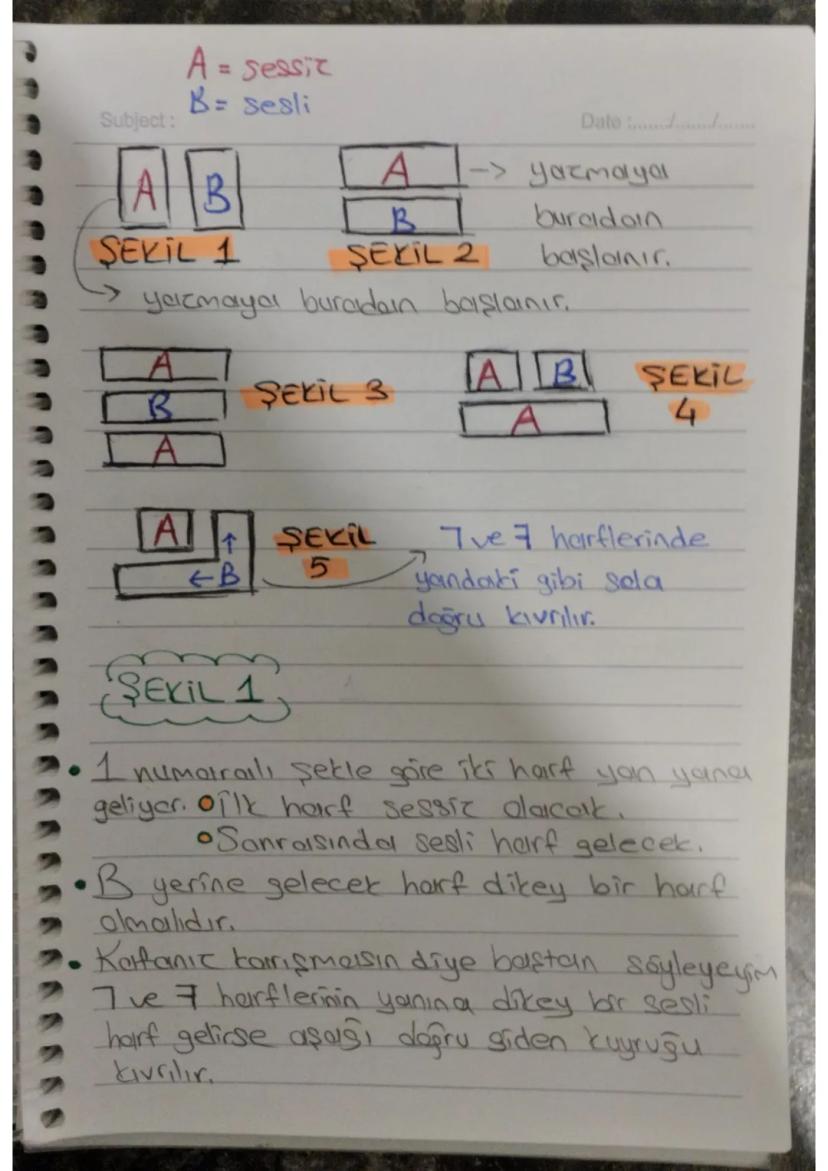 A = sessiz
B = sesli
Subject :
Date :....../....../......
A B
A -> yazmaya
B buradan
ŞEKİL 1 ŞEKİL 2 başlanır.
-> yazmaya buradan başlanır.
A
B ŞEKİL 3
A
A B ŞEKİL
A 4
A ↑ ŞEKİL ㄱ ve ㅋ harflerinde
←B 5 yandaki gibi sola
doğru kıvrılır.
ŞEKİL 1
• 1 numaralı şekle göre iki harf yan yana
geliyor. • İlk harf sessiz olacak.
• Sonrasında sesli harf gelecek.
• B yerine gelecek harf dikey bir harf
olmalıdır.
• Kafanız karışmasın diye baştan söyleyeyim
ㄱ ve ㅋ harflerinin yanına dikey bir sesli
harf gelirse aşağı doğru giden kuyruğu
kıvrılır.